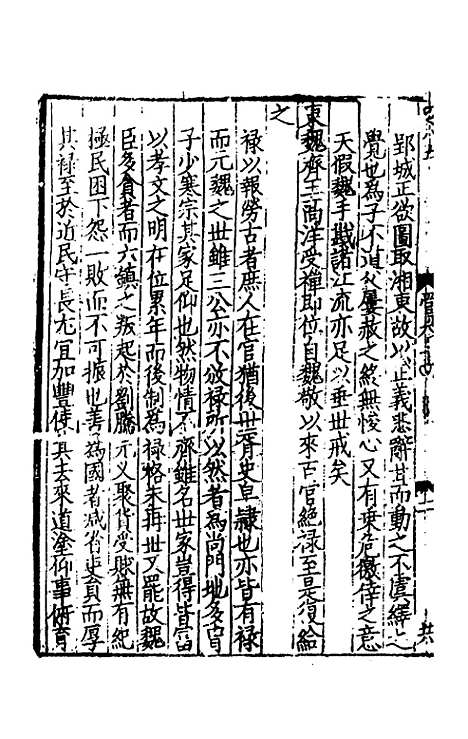 郢城正欲圖取湘東故以正義悉辭甘而動之不虞繹之
覺也為子不道父屢赦之終無悛心又有乗危僥倖之意
天假魏手戮諸江流亦足以垂世戒矣
東魏齊王高洋受禪即位自魏敬以來百官絶禄至是復給
之
禄以報勞古者庶人在官猶後世胥史皁隷也亦皆有禄
而元魏之世雖三公亦不放禄所以然者為尚門地多冑
子少寒宗其家足仰也然物情不齊雖名世家豈得皆富
以孝文之明在位累年而後制為禄格未再世又罷故魏
臣多貪者而六鎮之叛起於劉騰元义聚貨受賕無有紀
極民困下怨一敗而不可振也善為國者減省吏員而厚
其禄至於近民守長尤宜加豐使其去來道塗仰事俯育